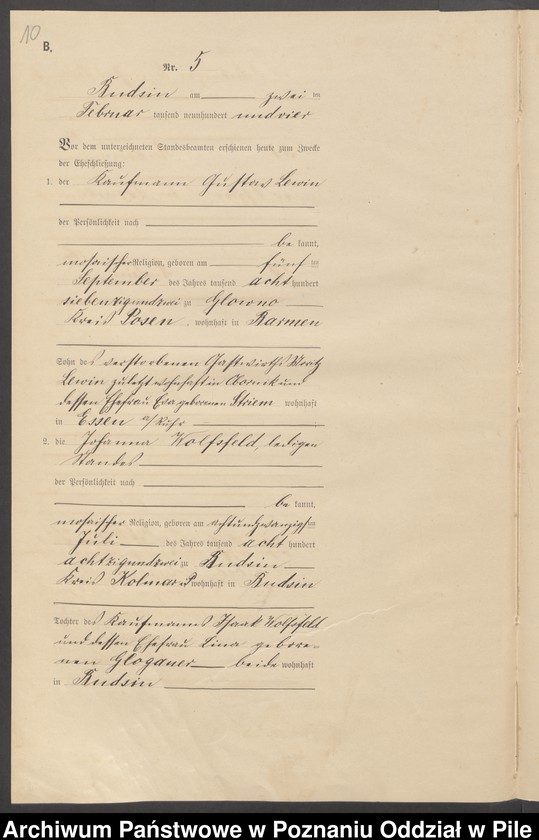 10
B.
Nr. 5
Budsin am zwei ten
Februar tausend neunhundert undvier
Vor dem unterzeichneten Standesbeamten erschienen heute zum Zwecke
der Eheschließung:
1. der Kaufmann Gustav Lewin
der Persönlichkeit nach
be kannt,
mosaischer Religion, geboren am fünf ten
September des Jahres tausend acht hundert
siebenzigundzwei zu Glowno
Kreis Posen, wohnhaft in Barmen
Sohn des verstorbenen Gastwirths Moritz
Lewin zuletzt wohnhaft in Kornik und
dessen Ehefrau Eva geborenen Striem wohnhaft
in Essen a/Ruhr
2. die Johanna Wolfsfeld, ledigen
Standes
der Persönlichkeit nach
be kannt,
mosaischer Religion, geboren am achtundzwanzigsten
Juli des Jahres tausend acht hundert
achtzigundzwei zu Budsin
Kreis Kolmar P wohnhaft in Budsin
Tochter des Kaufmanns Isaak Wolfsfeld
und dessen Ehefrau Lina gebore-
nen Glogauer beide wohnhaft
in Budsin
Archiwum Państwowe w Poznaniu Oddział w Pile